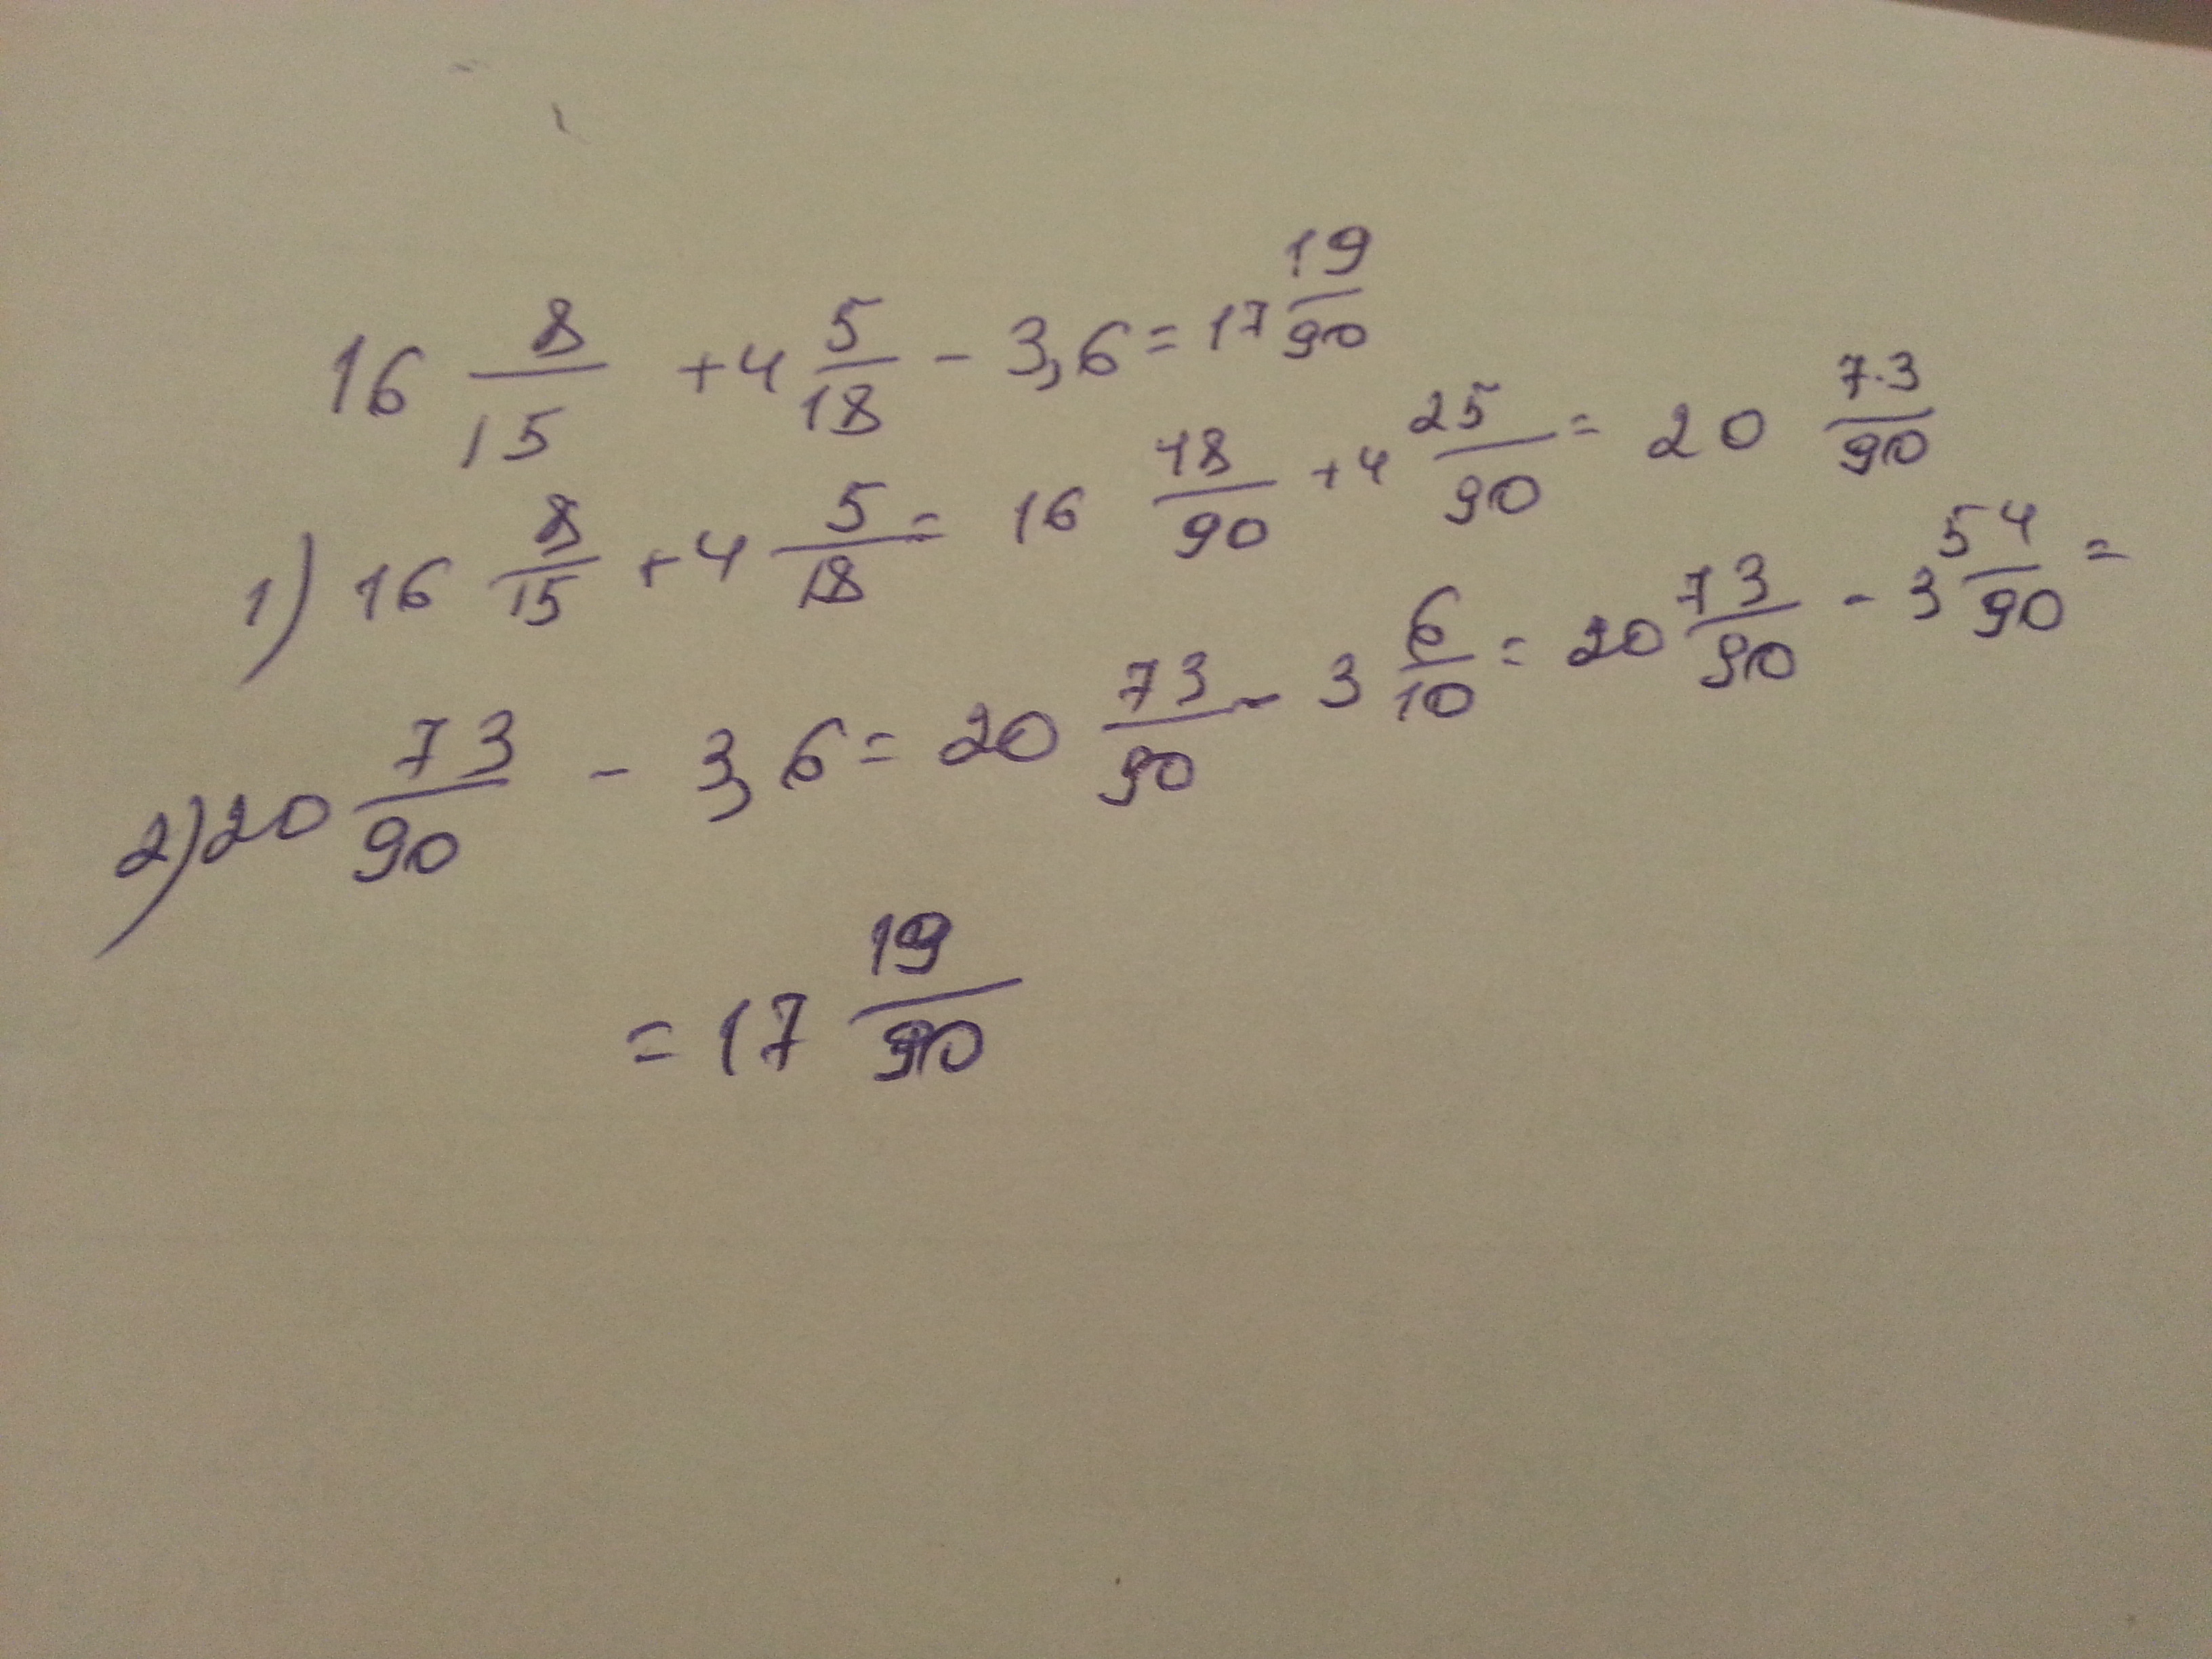 16 8/15 + 4 5/18 - 3,6 = 17 19/90
1) 16 8/15 + 4 5/18 = 16 48/90 + 4 25/90 = 20 73/90
2) 20 73/90 - 3,6 = 20 73/90 - 3 6/10 = 20 73/90 - 3 54/90 =
= 17 19/90